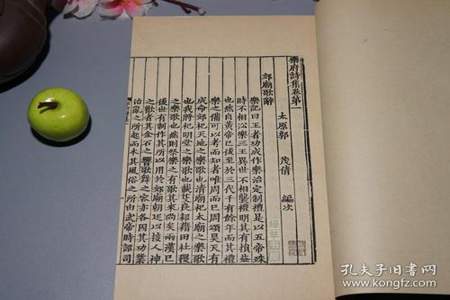 樂府詩集卷第一
太原郭 茂倩 編次
郊廟歌辭
樂記曰王者功成作樂治定制禮是以五帝殊
時不相沿樂三王異世不相襲禮明其有損益
也然自黃帝已後至於三代千有餘年而其禮
樂之備可以考而知者唯周而已周頌昊天有
成命郊祀天地之樂歌也清廟祀太廟之樂歌
也我將祀明堂之樂歌也載芟良耜藉田社稷
之樂歌也然則祭樂之有歌其來尚矣兩漢已
後世有制作其所以用於郊廟朝廷以接人神
之歡者其金石之響歌舞之容亦各因其功業
治亂之所起而本其風俗之所由武帝時詔司
孔夫子旧书网
www.kongfz.com